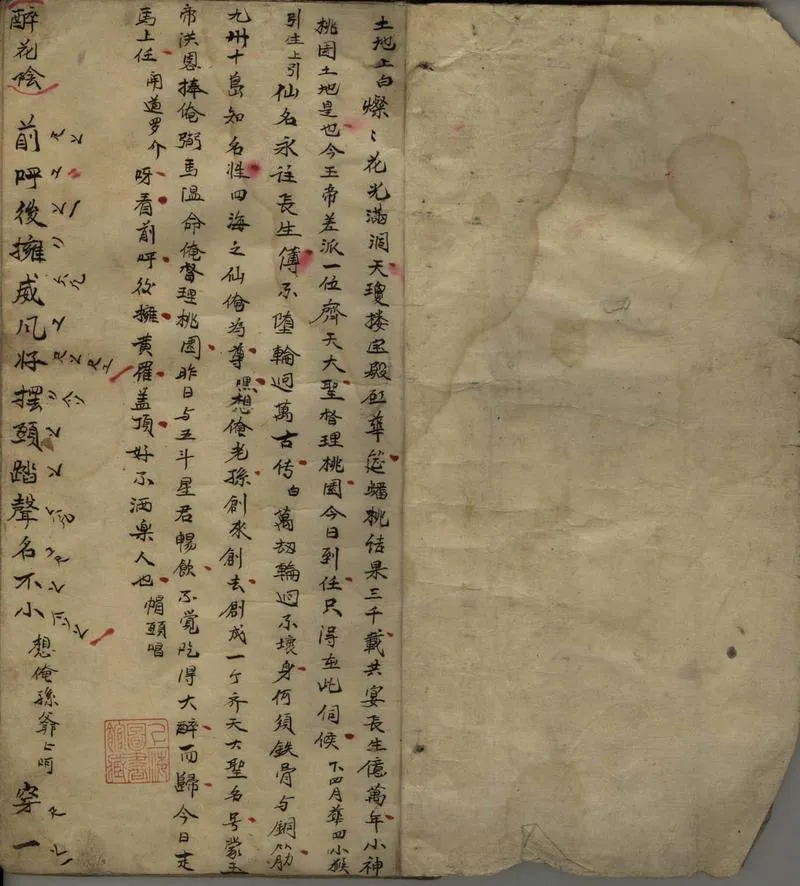 土地上白燦〻花光滿洞天瓊楼宝殿巨華筵蟠桃结果三千載共宴長生億萬年小神
桃园土地是也今玉帝差派一位齊天大聖督理桃园今日到任只得在此伺候下四月華四小猴
引生上引仙名永注長生傳不墮輪迴萬古传白萬劫輪迴不壞身何須鉄骨与銅筋
九州十島知名性四海之仙俺為尊嘿想俺老孫創來創去創成一个齐天大聖名号蒙玉
帝洪恩捧俺弼馬溫命俺督理桃园昨日与五斗星君暢飲不覺吃得大醉而歸今日走
馬上任開道罗介呀看前呼後擁黄羅盖顶好不洒樂人也帽頭唱
醉花陰前呼後擁威凤好擺頭踏聲名不小想俺孫爺〻呵穿一
上海圖書館藏